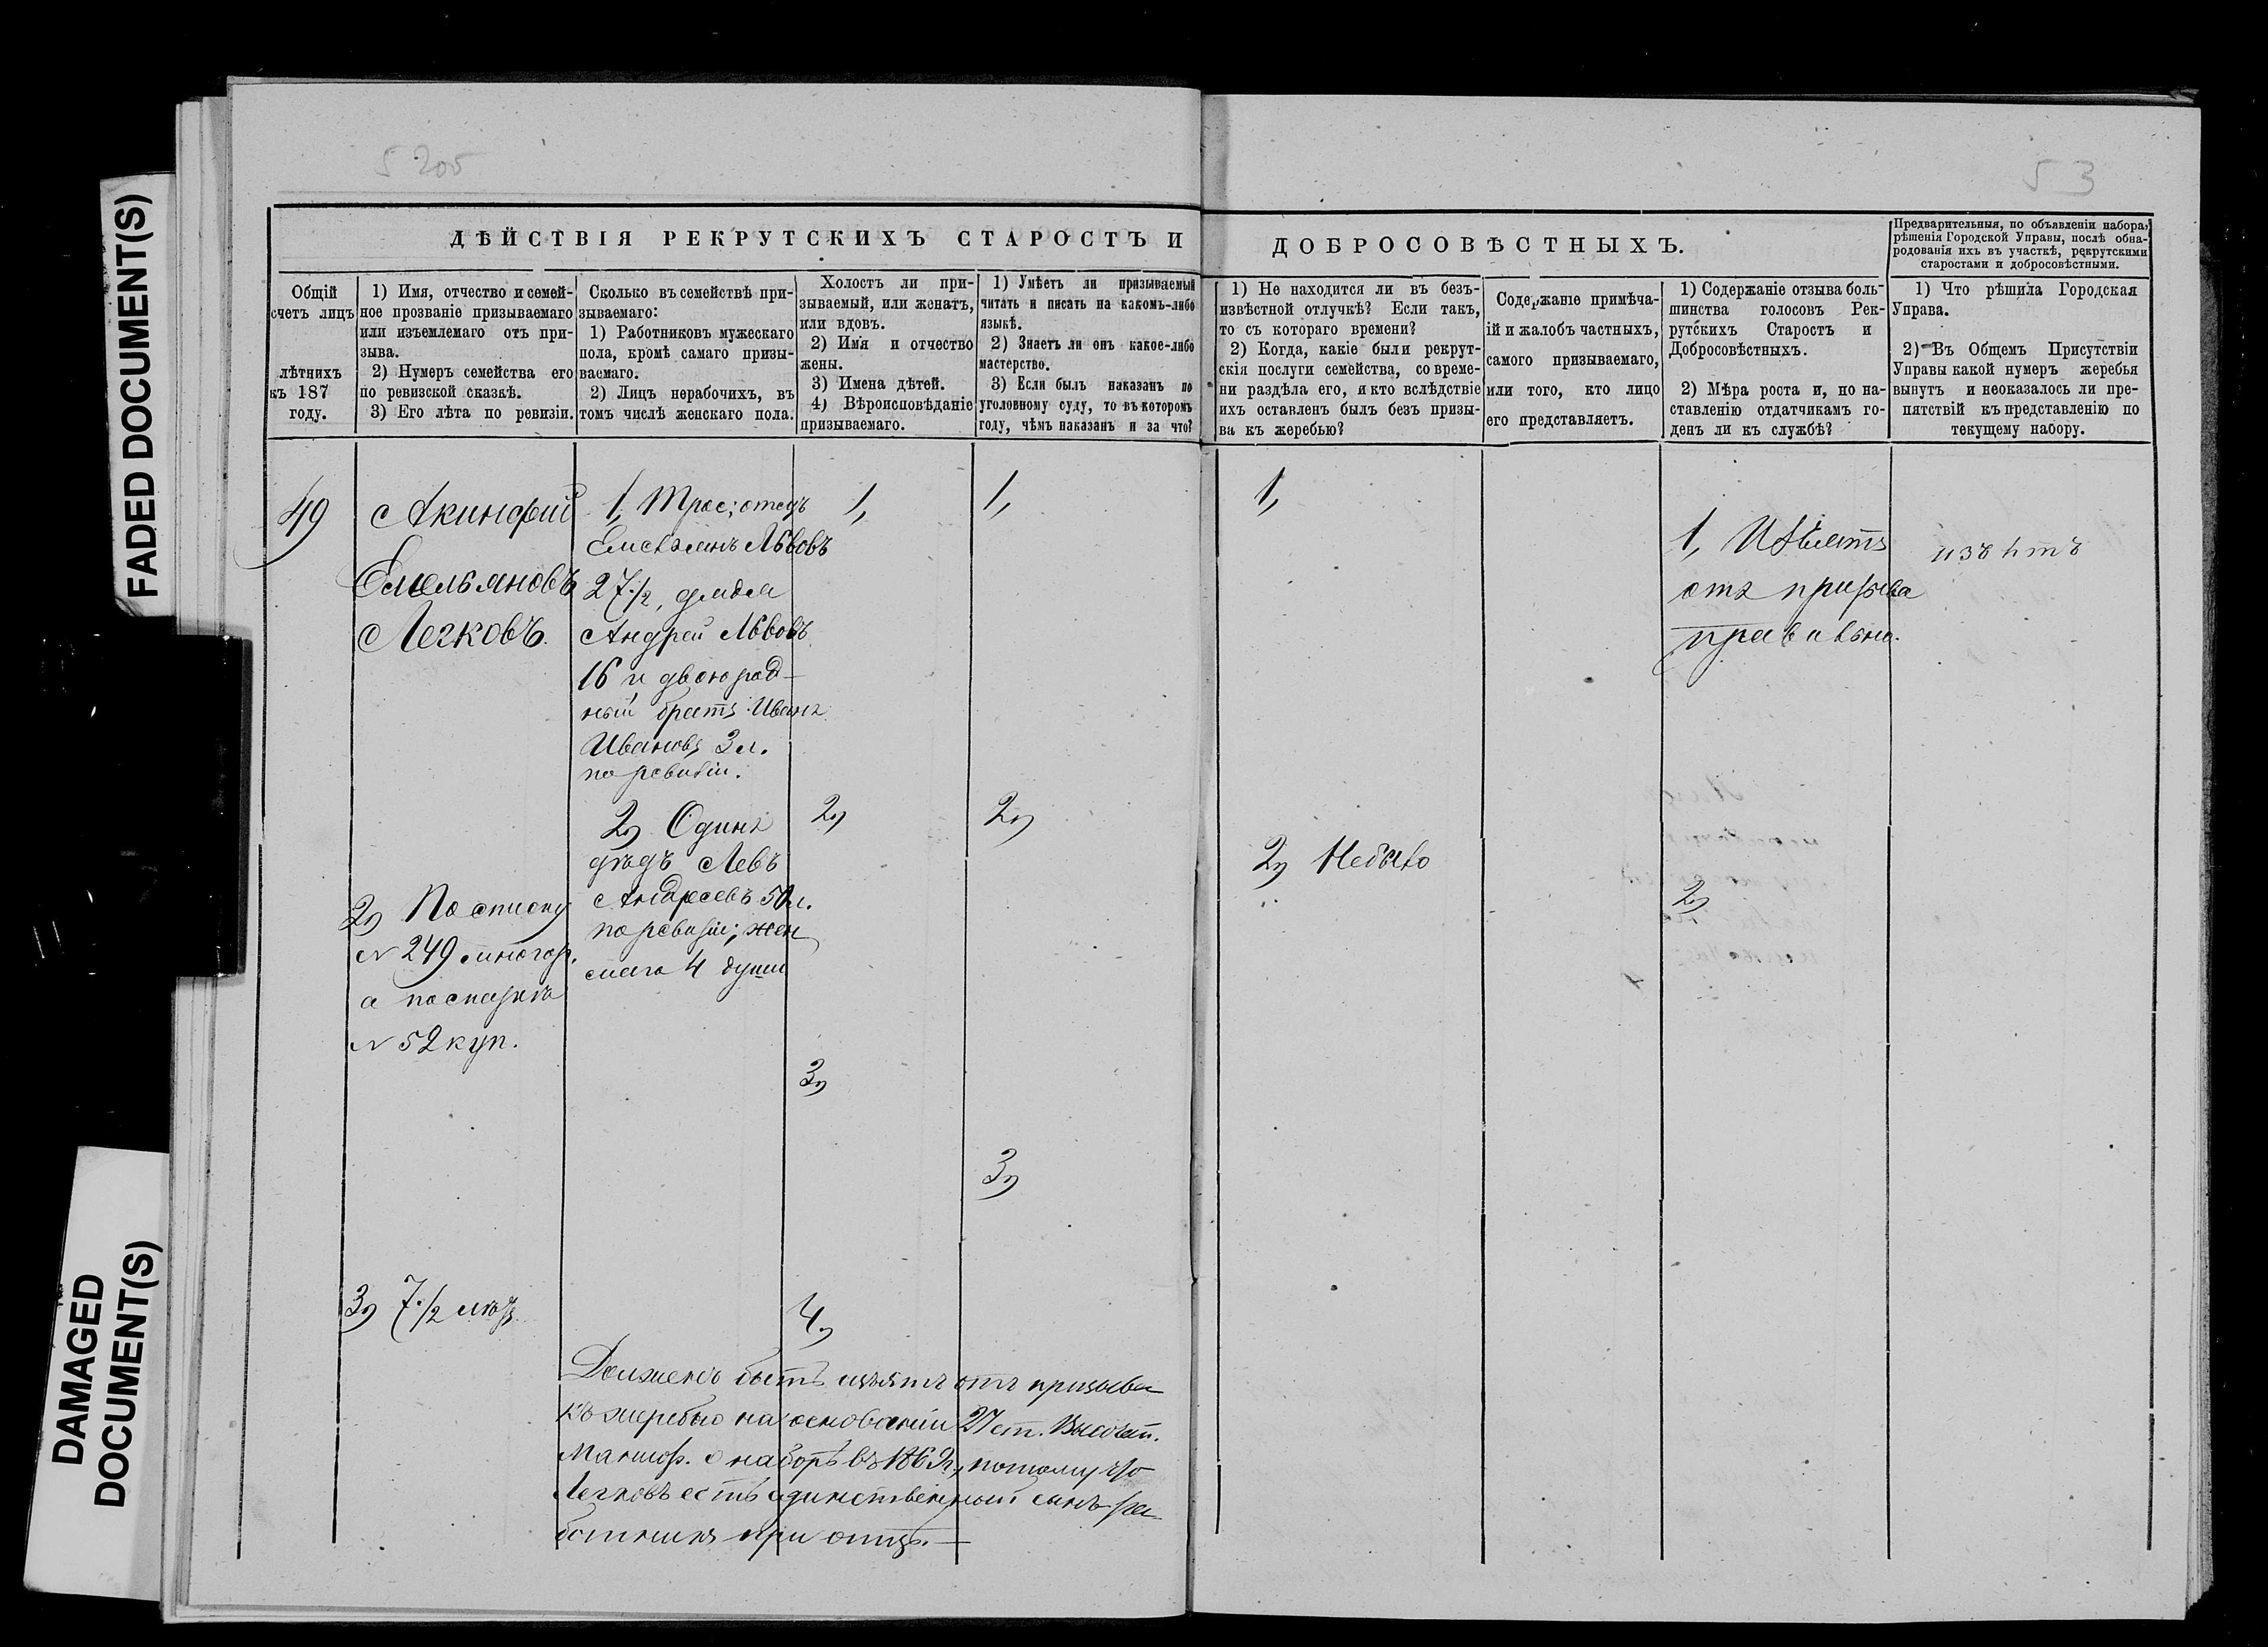 FADED DOCUMENT(S)
DAMAGED
DOCUMENT(S)
5 205
53
ДѢЙСТВІЯ РЕКРУТСКИХЪ СТАРОСТЪ И ДОБРОСОВѢСТНЫХЪ.
Предварительныя, по объявленіи набора,
рѣшенія Городской Управы, послѣ обна-
родованія ихъ въ участкѣ, рекрутскими
старостами и добросовѣстными.
Общій
счетъ лицъ
лѣтнихъ
къ 187
году.
1) Имя, отчество и семей-
ное прозваніе призываемаго
или изъемлемаго отъ при-
зыва.
2) Нумеръ семейства его
по ревизской сказкѣ.
3) Его лѣта по ревизіи.
Сколько въ семействѣ при-
зываемаго:
1) Работниковъ мужескаго
пола, кромѣ самаго призы-
ваемаго.
2) Лицъ нерабочихъ, въ
томъ числѣ женскаго пола.
Холостъ ли при-
зываемый, или женатъ,
или вдовъ.
2) Имя и отчество
жены.
3) Имена дѣтей.
4) Вѣроисповѣданіе
призываемаго.
1) Умѣетъ ли призываемый
читать и писать на какомъ-либо
языкѣ.
2) Знаетъ ли онъ какое-либо
мастерство.
3) Если былъ наказанъ по
уголовному суду, то въ которомъ
году, чѣмъ наказанъ и за что?
1) Не находится ли въ безъ-
извѣстной отлучкѣ? Если такъ,
то съ котораго времени?
2) Когда, какіе были рекрут-
скія послуги семейства, со време-
ни раздѣла его, и кто вслѣдствіе
ихъ оставленъ былъ безъ призы-
ва къ жеребью?
Содержаніе примѣча-
ій и жалобъ частныхъ,
самого призываемаго,
или того, кто лицо
его представляетъ.
1) Содержаніе отзыва боль-
шинства голосовъ Рек-
рутскихъ Старостъ и
Добросовѣстныхъ.
2) Мѣра роста и, но на-
ставленію отдатчикамъ го-
денъ ли къ службѣ?
1) Что рѣшила Городская
Управа.
2) Въ Общемъ Присутствіи
Управы какой нумеръ жеребья
вынутъ и неоказалось ли пре-
пятствій къ представленію по
текущему набору.
49
Акинфій
Емельяновъ
Легковъ.
2) По списку
N 249 многор.
а по сказкѣ
N 52 куп.
3) 7 1/2 лѣтъ
1, Трое; отецъ
Емельянъ Львовъ
27 1/2, дядья
Андрей Львовъ
16 и двоюрод-
ный братъ Иванъ
Ивановъ 3 л.
по ревизіи.
2) Одинъ
дѣдъ Левъ
Андреевъ 50 л.
по ревизіи; жен
скаго 4 души
1,
2)
3)
4)
1,
2)
3)
1,
2) Небыло
1, Изъять
отъ призыва
правильно.
2)
изъятъ
Долженъ быть изъятъ отъ призыва
къ жеребью на основаніи 27 ст. Высочай.
Маниф. о наборѣ въ 1863 г., потому что
Легковъ есть единственный сынъ ра-
ботникъ при отцѣ.